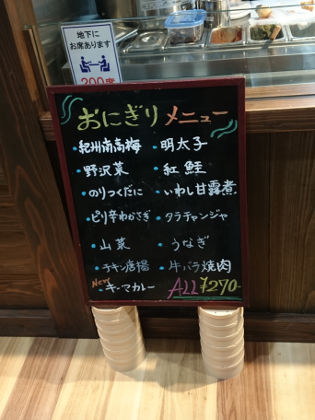 地下に
お席あります
200席
おにぎりメニュー
・紀州南高梅 ・明太子
・野沢菜 ・紅鮭
・のりつくだに ・いわし甘露煮
・ピリ辛わかさぎ ・タラチャンジャ
・山菜 ・うなぎ
・チキン唐揚 ・牛バラ焼肉
New
・キーマカレー ALL ¥270-